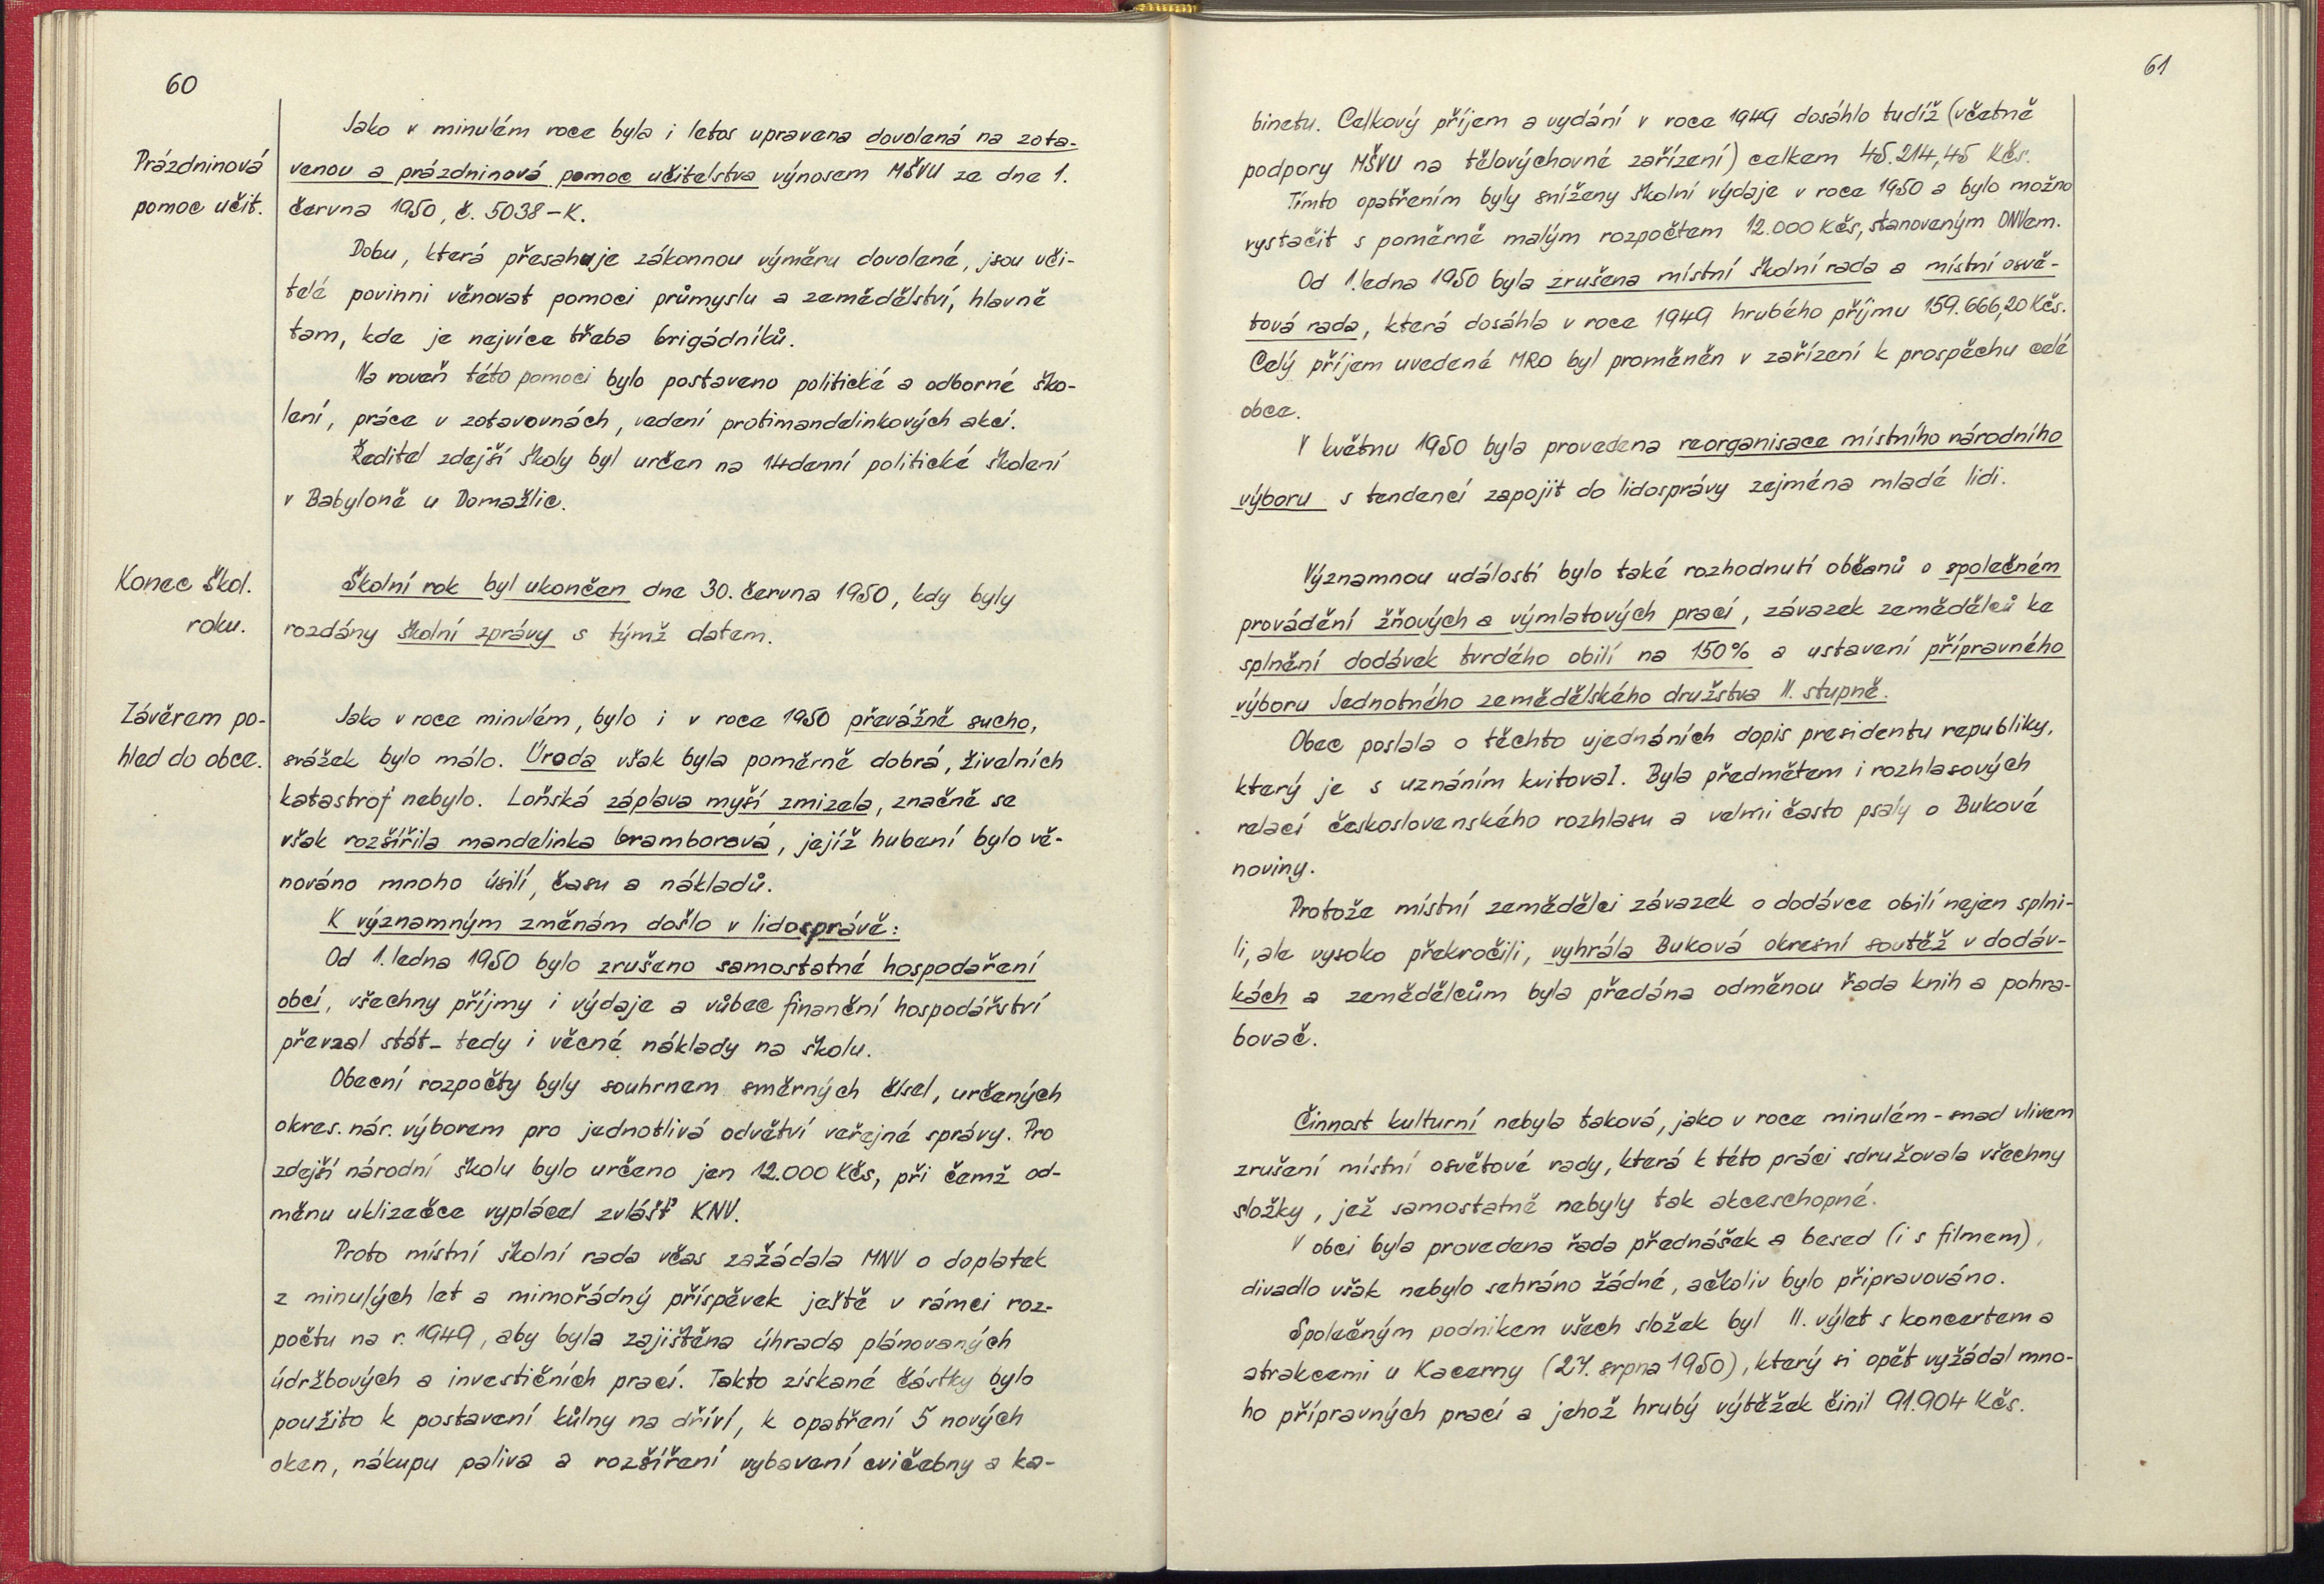 60
Jako v minulém roce byla i letos upravena dovolená na zota-
Prázdninová
pomoc učit.
venou a prázdninová pomoc učitelstva výnosem MŠVU ze dne 1.
června 1950, č. 5038-K.
Dobu, která přesahuje zákonnou výměru dovolené, jsou uči-
telé povinni věnovat pomoci průmyslu a zemědělství, hlavně
tam, kde je nejvíce třeba brigádníků.
Na roveň této pomoci bylo postaveno politické a odborné ško-
lení, práce v zotavovnách, vedení protimandelinkových akcí.
Ředitel zdejší školy byl určen na 14denní politické školení
v Babyloně u Domažlic.
Konec škol.
roku.
Školní rok byl ukončen dne 30. června 1950, kdy byly
rozdány školní zprávy s týmž datem.
Závěrem po-
hled do obce.
Jako v roce minulém, bylo i v roce 1950 převážně sucho,
srážek bylo málo. Úroda však byla poměrně dobrá, živelních
katastrof nebylo. Loňská záplava myší zmizela, značně se
však rozšířila mandelinka bramborová, jejíž hubení bylo vě-
nováno mnoho úsilí, času a nákladů.
K významným změnám došlo v lidosprávě:
Od 1. ledna 1950 bylo zrušeno samostatné hospodaření
obcí, všechny příjmy i výdaje a vůbec finanční hospodářství
převzal stát - tedy i věcné náklady na školu.
Obecní rozpočty byly souhrnem směrných čísel, určených
okres. nár. výborem pro jednotlivá odvětví veřejné správy. Pro
zdejší národní školu bylo určeno jen 12.000 Kčs, při čemž od-
měnu uklizečce vyplácel zvlášť KNV.
Proto místní školní rada včas zažádala MNV o doplatek
z minulých let a mimořádný příspěvek ještě v rámci roz-
počtu na r. 1949, aby byla zajištěna úhrada plánovaných
údržbových a investičních prací. Takto získané částky bylo
použito k postavení kůlny na dříví, k opatření 5 nových
oken, nákupu paliva a rozšíření vybavení cvičebny a ka-
61
binetu. Celkový příjem a vydání v roce 1949 dosáhlo tudíž (včetně
podpory MŠVU na tělovýchovné zařízení) celkem 45.214,45 Kčs.
Tímto opatřením byly sníženy školní výdaje v roce 1950 a bylo možno
vystačit s poměrně malým rozpočtem 12.000 Kčs, stanoveným ONVem.
Od 1. ledna 1950 byla zrušena místní školní rada a místní osvě-
tová rada, která dosáhla v roce 1949 hrubého příjmu 159.666,20 Kčs.
Celý příjem uvedené MRO byl proměněn v zařízení k prospěchu celé
obce.
V květnu 1950 byla provedena reorganisace místního národního
výboru s tendencí zapojit do lidosprávy zejména mladé lidi.
Významnou událostí bylo také rozhodnutí občanů o společném
provádění žňových a výmlatových prací, závazek zemědělců ke
splnění dodávek tvrdého obilí na 150% a ustavení přípravného
výboru Jednotného zemědělského družstva II. stupně.
Obec poslala o těchto ujednáních dopis presidentu republiky,
který je s uznáním kvitoval. Byla předmětem i rozhlasových
relací československého rozhlasu a velmi často psaly o Bukové
noviny.
Protože místní zemědělci závazek o dodávce obilí nejen splni-
li, ale vysoko překročili, vyhrála Buková okresní soutěž v dodáv-
kách a zemědělcům byla předána odměnou řada knih a pohra-
bovač.
Činnost kulturní nebyla taková, jako v roce minulém - snad vlivem
zrušení místní osvětové rady, která k této práci sdružovala všechny
složky, jež samostatně nebyly tak akceschopné.
V obci byla provedena řada přednášek a besed (i s filmem),
divadlo však nebylo sehráno žádné, ačkoliv bylo připravováno.
Společným podnikem všech složek byl II. výlet s koncertem a
atrakcemi u Kacerny (27. srpna 1950), který si opět vyžádal mno-
ho přípravných prací a jehož hrubý výtěžek činil 91.904 Kčs.